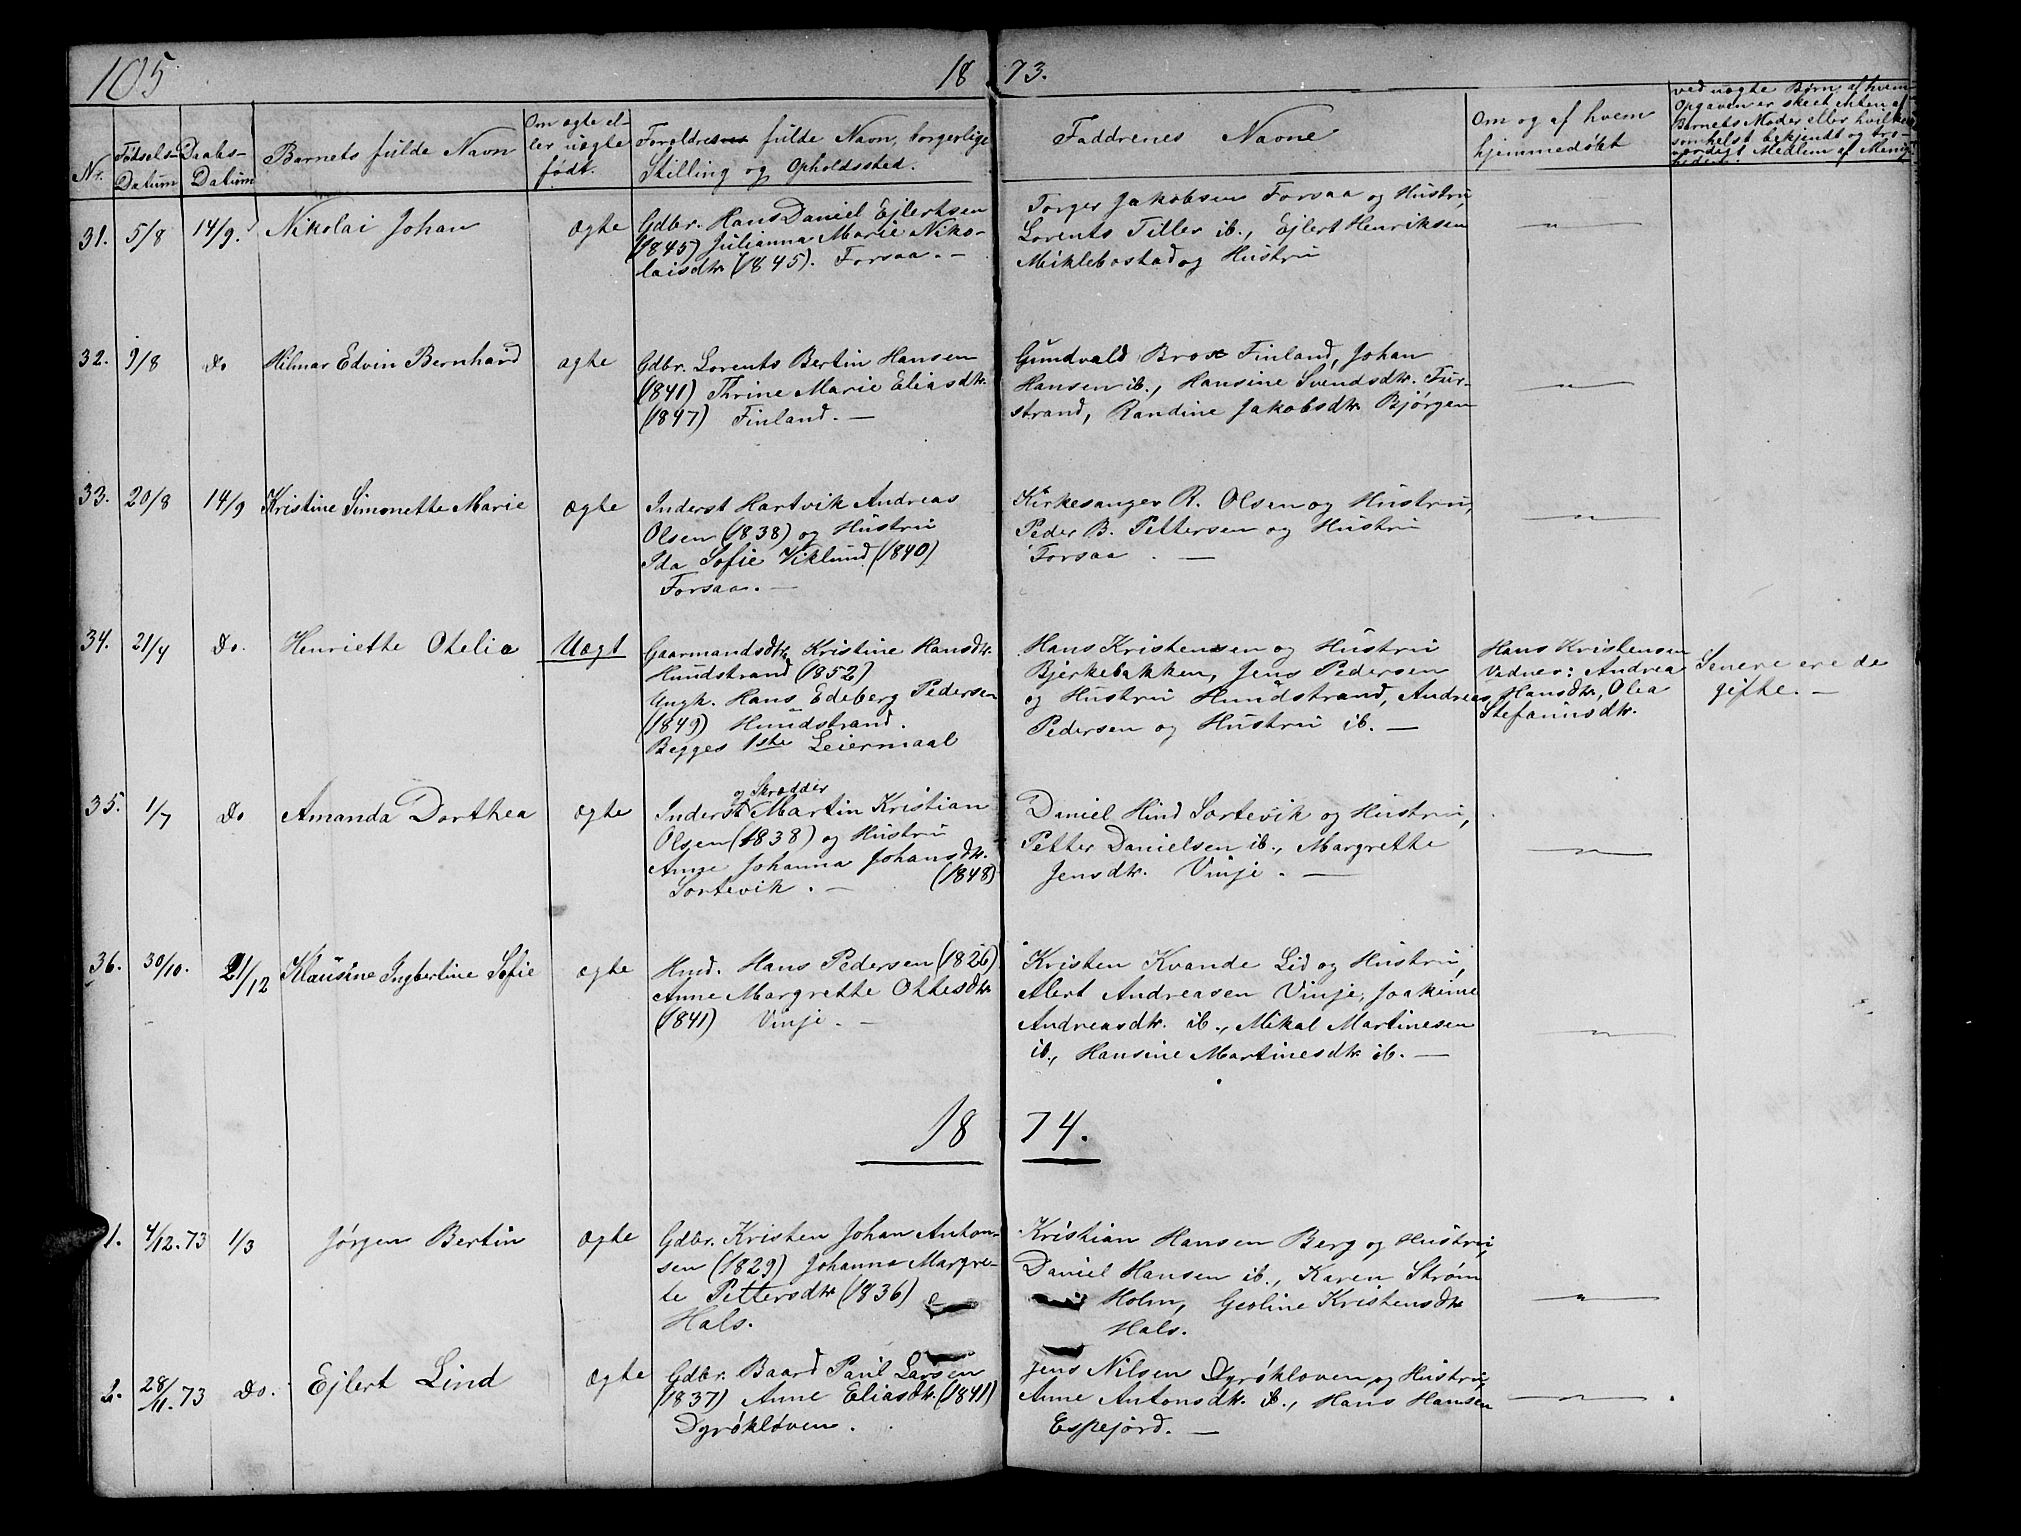 105
18 73.
Nr.
Fötsels-
Datum
Daabs-
Datum
Barnets fulde Navn
Om ægte el-
ler uægte
født.
Forældrenes fulde Navn, borgerlige
Stilling og Opholdssted.
Faddrenes Navne
Om og af hvem
hjemmedøbt
ved uægte Børn af hvem
Opgaven er skeet enten af
Barnets Moder eller hvilken
somhelst bekjendt og tro-
værdigt Medlem af Menig-
31. 5/8 14/9. Nikolai Johan ægte
Gdbr. Hans Daniel Ejlertsen
(1845) Julianna Marie Niko-
laisdtr (1845). Forsaa. —
Torger Jakobsen Forsaa og Hustru,
Lorents Tiller ib., Ejlert Henriksen
Miklebostad og Hustru
—"—
32. 9/8 do Hilmar Edvin Bernhard ægte
Gdbr. Lorents Bertin Hansen
(1841) Thrine Marie Eliasdtr.
(1847) Finland. —
Gundvald Brox Finland, Johan
Hansen ib., Hansine Svendsdtr. Fur-
strand, Randine Jakobsdtr Bjørgen
—"—
33. 20/8 14/9 Kristine Simonette Marie ægte
Inderst Hartvik Andreas
Olsen (1838) og Hustru
Ida Sofie Viklund (1840)
Forsaa. —
Kirkesanger R. Olsen og Hustru,
Peder B. Pettersen og Hustru
Forsaa . —
—"—
34. 21/4 Do. Henriette Otelie Uægt
Gaarmandsdtr Kristine Hansdtr.
Hundstrand (1852)
Ungk. Hans Edeberg Pedersen
(1849) Hundstrand.
Begges 1ste Leiermaal
Hans Kristensen og Hustru
Bjerkebakken, Jens Pedersen
og Hustru Hundstrand, Andreas
Pedersen og Hustru ib. —
Hans Kristensen
Vidnes: Andrea
Hansdtr, Olea
Stefanusdtr.
Senere ere de
gifte. —
35. 1/7 Do Amanda Dorthea ægte
og Skrædder
Inderst Martin Kristian
Olsen (1838) og Hustru
Anne Johanna Johansdtr.
Sortevik . — (1848)
Daniel Hind Sortevik og Hustru,
Petter Danielsen ib., Margrette
Jensdtr. Vinje . —
—"—
36. 30/10. 21/12 Klausine Ingbertine Sofie ægte
Hmd. Hans Pedersen (1826)
Anne Margrette Ottesdtr
(1841) Vinje. —
Kristen Kvande Lid og Hustru,
Alert Andreasen Vinje, Joakime
Andreasdtr. ib., Mikal Martinesen
ib., Hansine Martinesdtr ib. —
—"—
18 74.
1. 4/12. 73 1/3 Jørgen Bertin ægte
Gdbr. Kristen Johan Anton-
sen (1829) Johanna Margre-
te Pettersdtr (1836)
Hals.
Kristian Hansen Berg og Hustru,
Daniel Hansen ib., Karen Strøm
Holm, Geoline Kristensdtr
Hals.
—"—
2. 28/11. 73 Do. Ejlert Lind ægte
Gdbr. Baard Paul Larsen
(1837) Anne Eliasdtr. (1841)
Dyrökloven .
Jens Nilsen Dyrökloven og Hustru,
Anne Antonsdtr. ib., Hans Hansen
Espejord. —
—"—